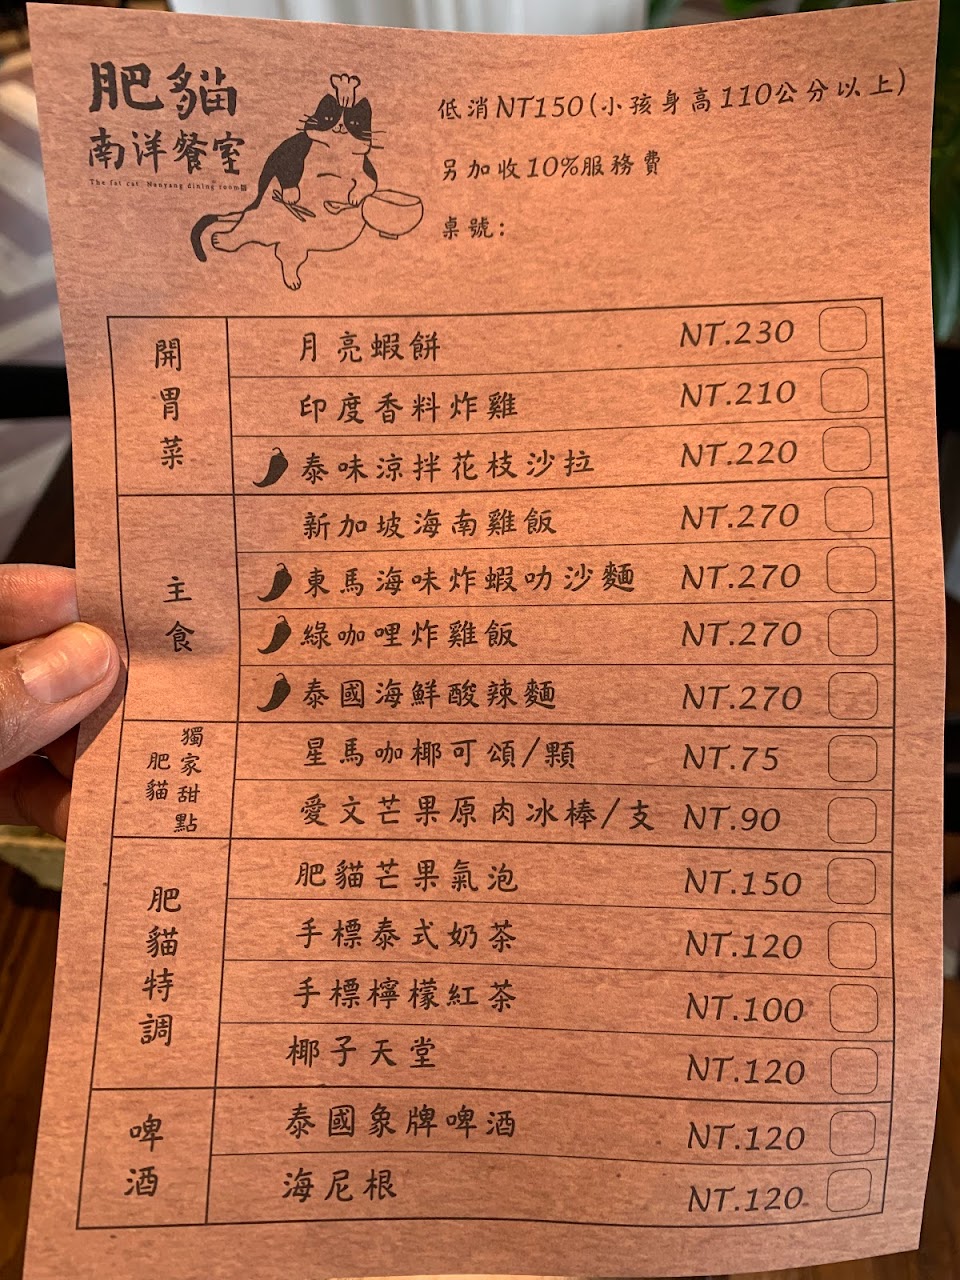 肥貓
南洋餐室
The fat cat Nanyang dining room
低消NT150(小孩身高110公分以上)
另加收10%服務費
桌號:
開胃菜
月亮蝦餅 NT.230
印度香料炸雞 NT.210
泰味涼拌花枝沙拉 NT.220
主食
新加坡海南雞飯 NT.270
東馬海味炸蝦叻沙麵 NT.270
綠咖哩炸雞飯 NT.270
泰國海鮮酸辣麵 NT.270
肥貓獨家甜點
星馬咖椰可頌/顆 NT.75
愛文芒果原肉冰棒/支 NT.90
肥貓特調
肥貓芒果氣泡 NT.150
手標泰式奶茶 NT.120
手標檸檬紅茶 NT.100
椰子天堂 NT.120
啤酒
泰國象牌啤酒 NT.120
海尼根 NT.120